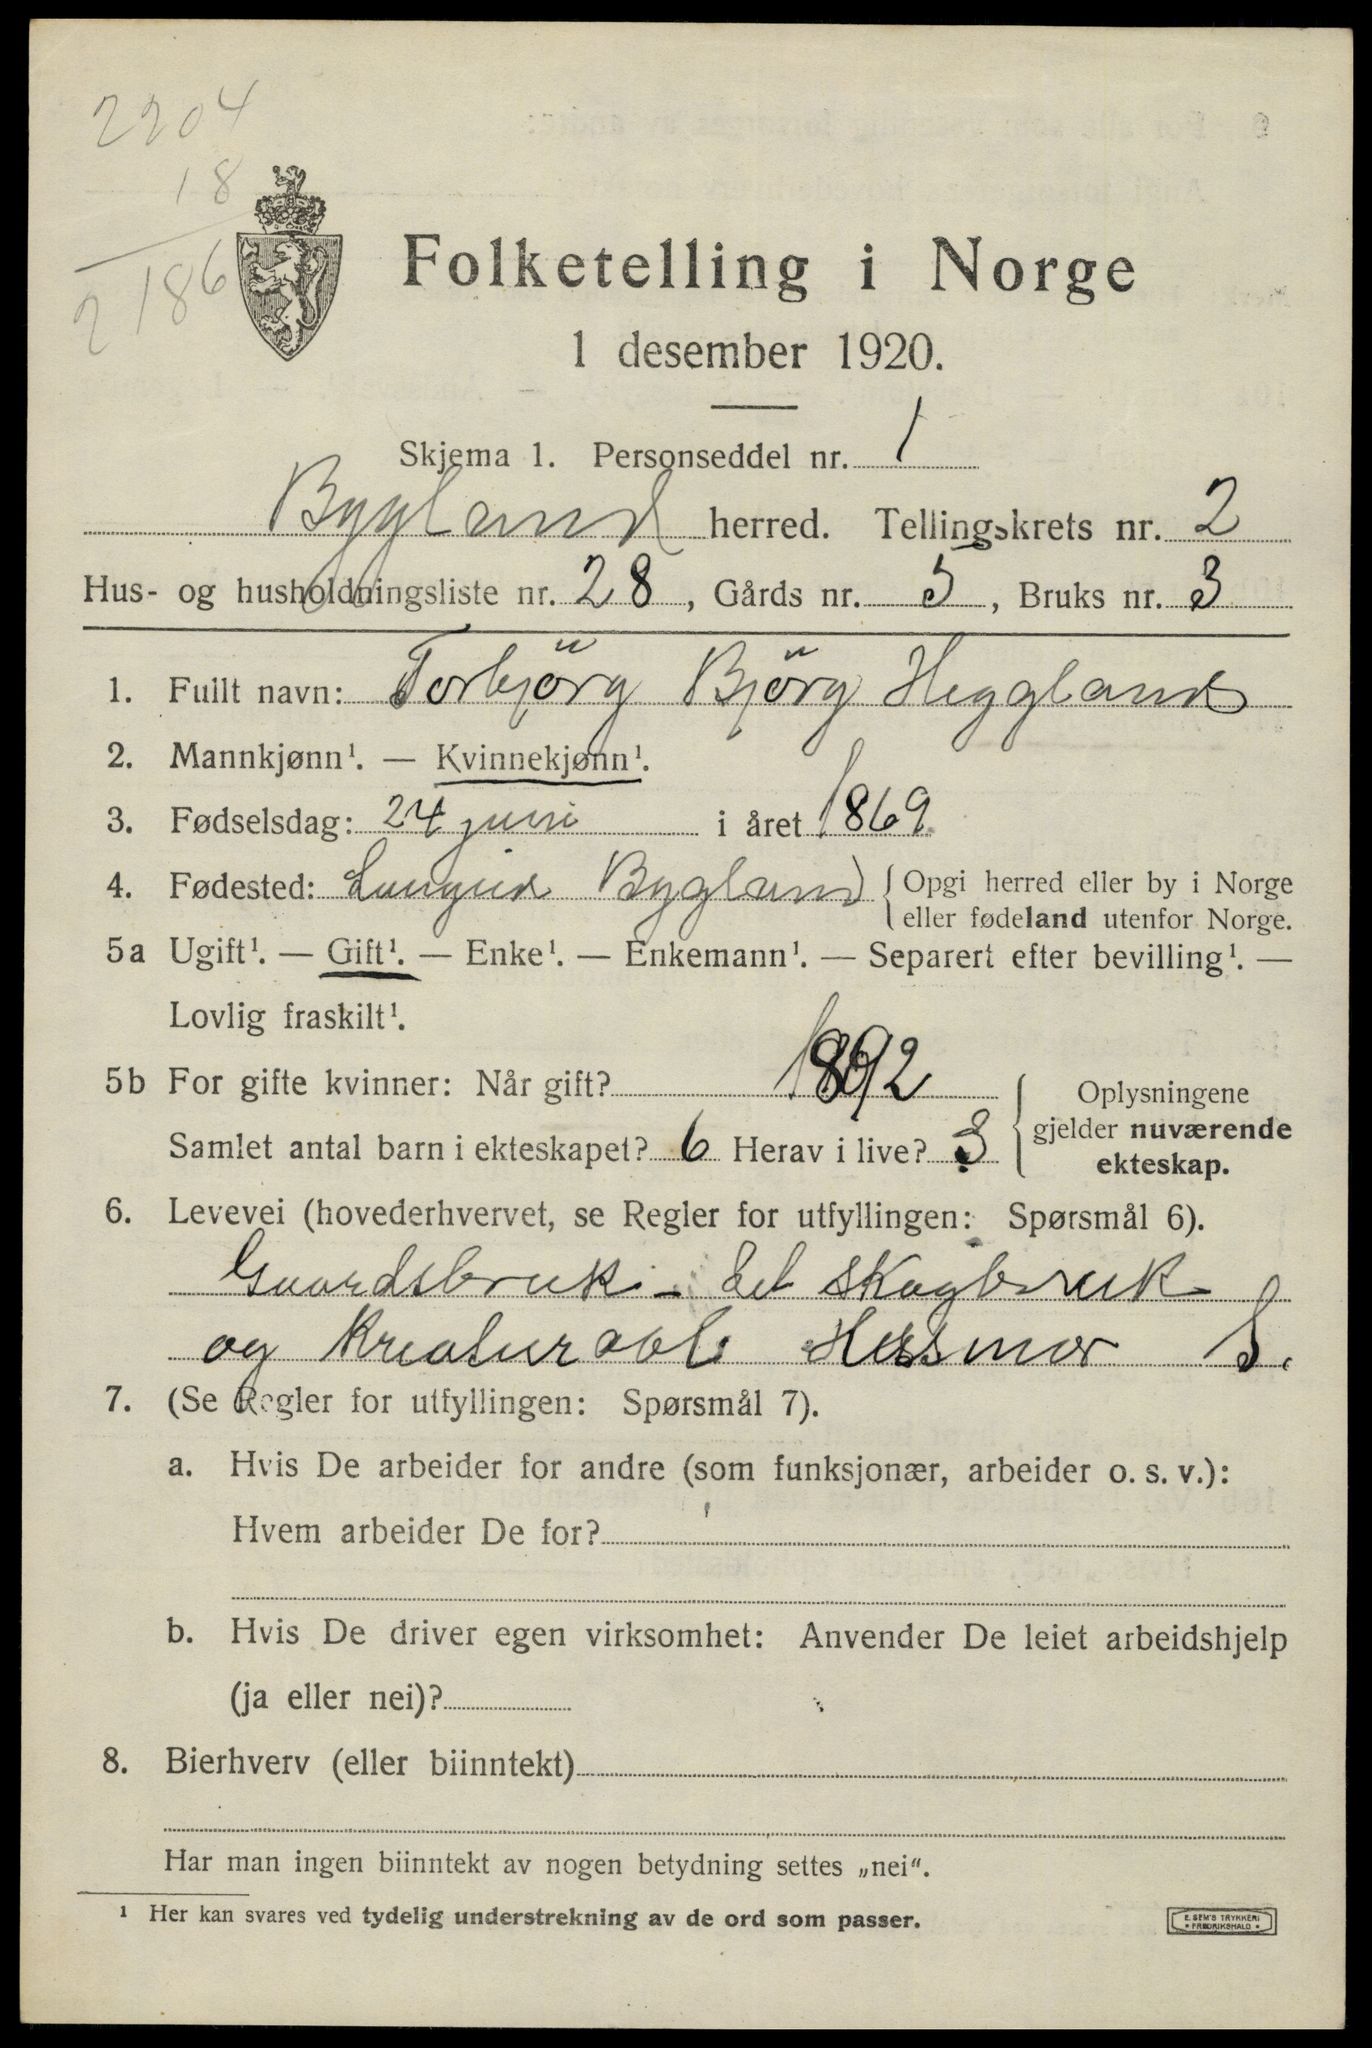 2204
18
2186
Folketelling i Norge
1 desember 1920.
Skjema 1. Personseddel nr. 1
Bygland herred. Tellingskrets nr. 2
Hus- og husholdningsliste nr. 28, Gårds nr. 5, Bruks nr. 3
1. Fullt navn: Torbjörg Björg Heggland
2. Mannkjønn¹. — Kvinnekjønn¹.
3. Fødselsdag: 24 juni i året 1869
4. Fødested: Bygland { Opgi herred eller by i Norge
eller fødeland utenfor Norge.
5a Ugift¹. — Gift¹. — Enke¹. — Enkemann¹. — Separert efter bevilling¹. —
Lovlig fraskilt¹.
5b For gifte kvinner: Når gift? 1892
Samlet antal barn i ekteskapet? 6 Herav i live? 3
Oplysningene
gjelder nuværende
ekteskap.
6. Levevei (hovederhvervet, se Regler for utfyllingen: Spørsmål 6).
Gaardsbruk - Skogbruk
og Kreaturavl Husmor S.
7. (Se Regler for utfyllingen: Spørsmål 7).
a. Hvis De arbeider for andre (som funksjonær, arbeider o. s. v.):
Hvem arbeider De for?
b. Hvis De driver egen virksomhet: Anvender De leiet arbeidshjelp
(ja eller nei)?
8. Bierhverv (eller biinntekt)
Har man ingen biinntekt av nogen betydning settes „nei".
¹ Her kan svares ved tydelig understrekning av de ord som passer.
E. SEM'S TRYKKERI
FREDRIKSHALD